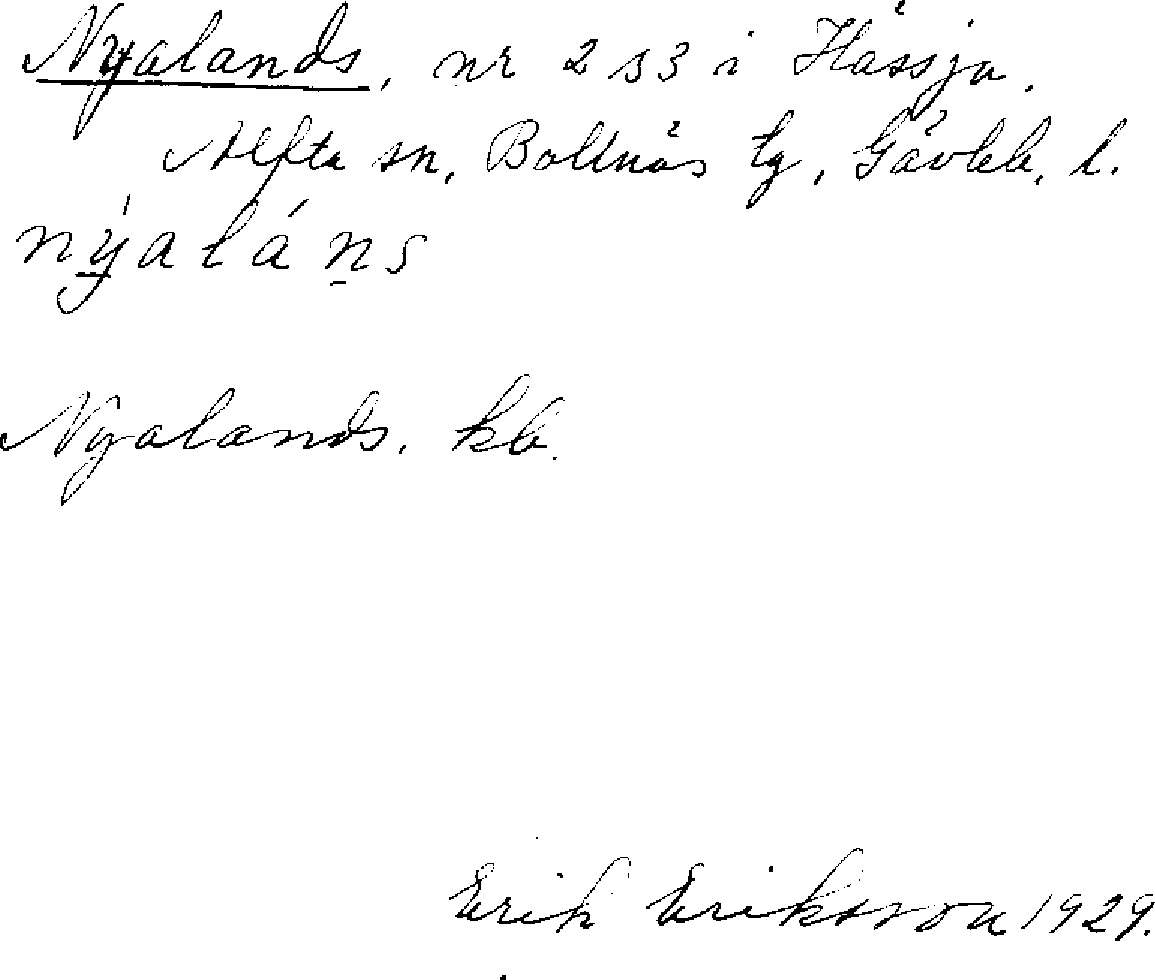 Nyalands, nr 2 s3 i Hässja.
Alfta sn, Bollnäs tg, Gävleb. l.
nýaláns
Nyalands. kb.
Erik Eriksson 1929.